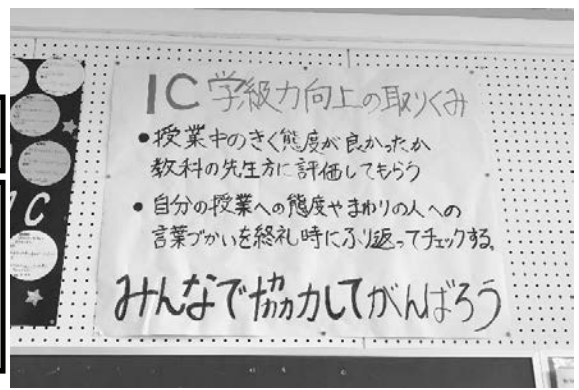 1C 学級力向上の取りくみ
●授業中のきく態度が良かったか
教科の先生方に評価してもらう
●自分の授業への態度やまわりの人への
言葉づかいを終礼時にふり返ってチェックする。
みんなで協力してがんばろう
C